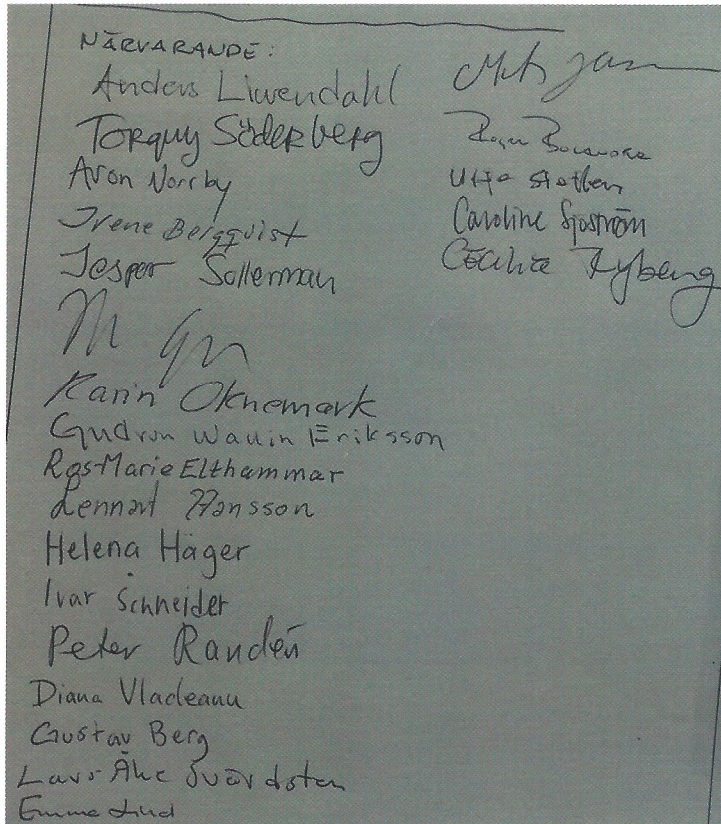 NÄRVARANDE:
Anders Liwendahl
Torquy Söderberg
Aron Norrby
Irene Bergqvist
Jesper Sollerman
Karin Oknemark
Gudrun Wallin Eriksson
Ros-Marie Elthammar
Lennart Hansson
Helena Häger
Ivar Schneider
Peter Randén
Diana Vladeanu
Gustav Berg
Lars-Åke Svärdsten
Emma Lind
Roger
Caroline Sjöström
Cecilia Ryberg